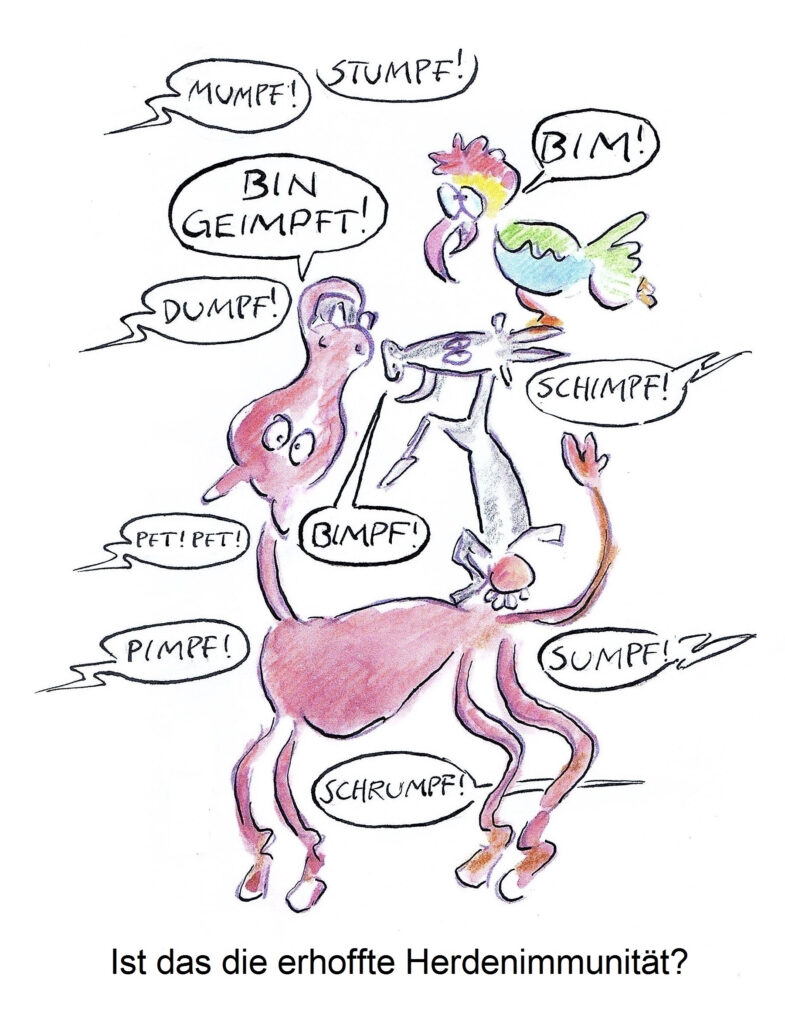 STUMPF!
MUMPF!
BIM!
BIN
GEIMPFT!
DUMPF!
SCHIMPF!
PFT! PFT!
BIMPF!
PIMPF!
SUMPF!
SCHRUMPF!
Ist das die erhoffte Herdenimmunität?